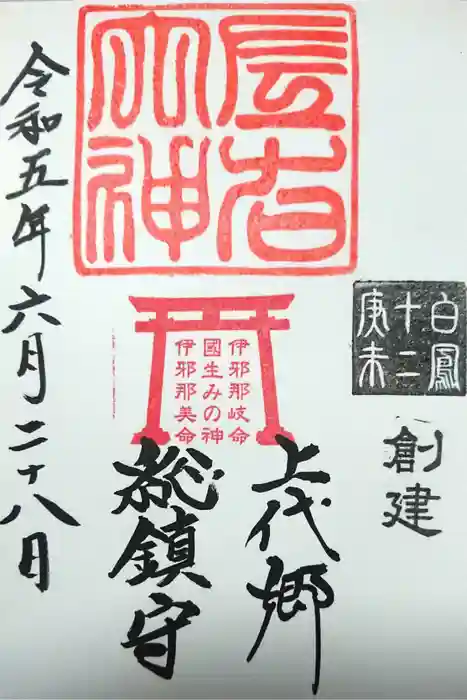 白鳳
十二
庚未
創建
大神
伊邪那岐命
國生みの神
伊邪那美命
上代郷
総鎮守
令和五年六月二十八日